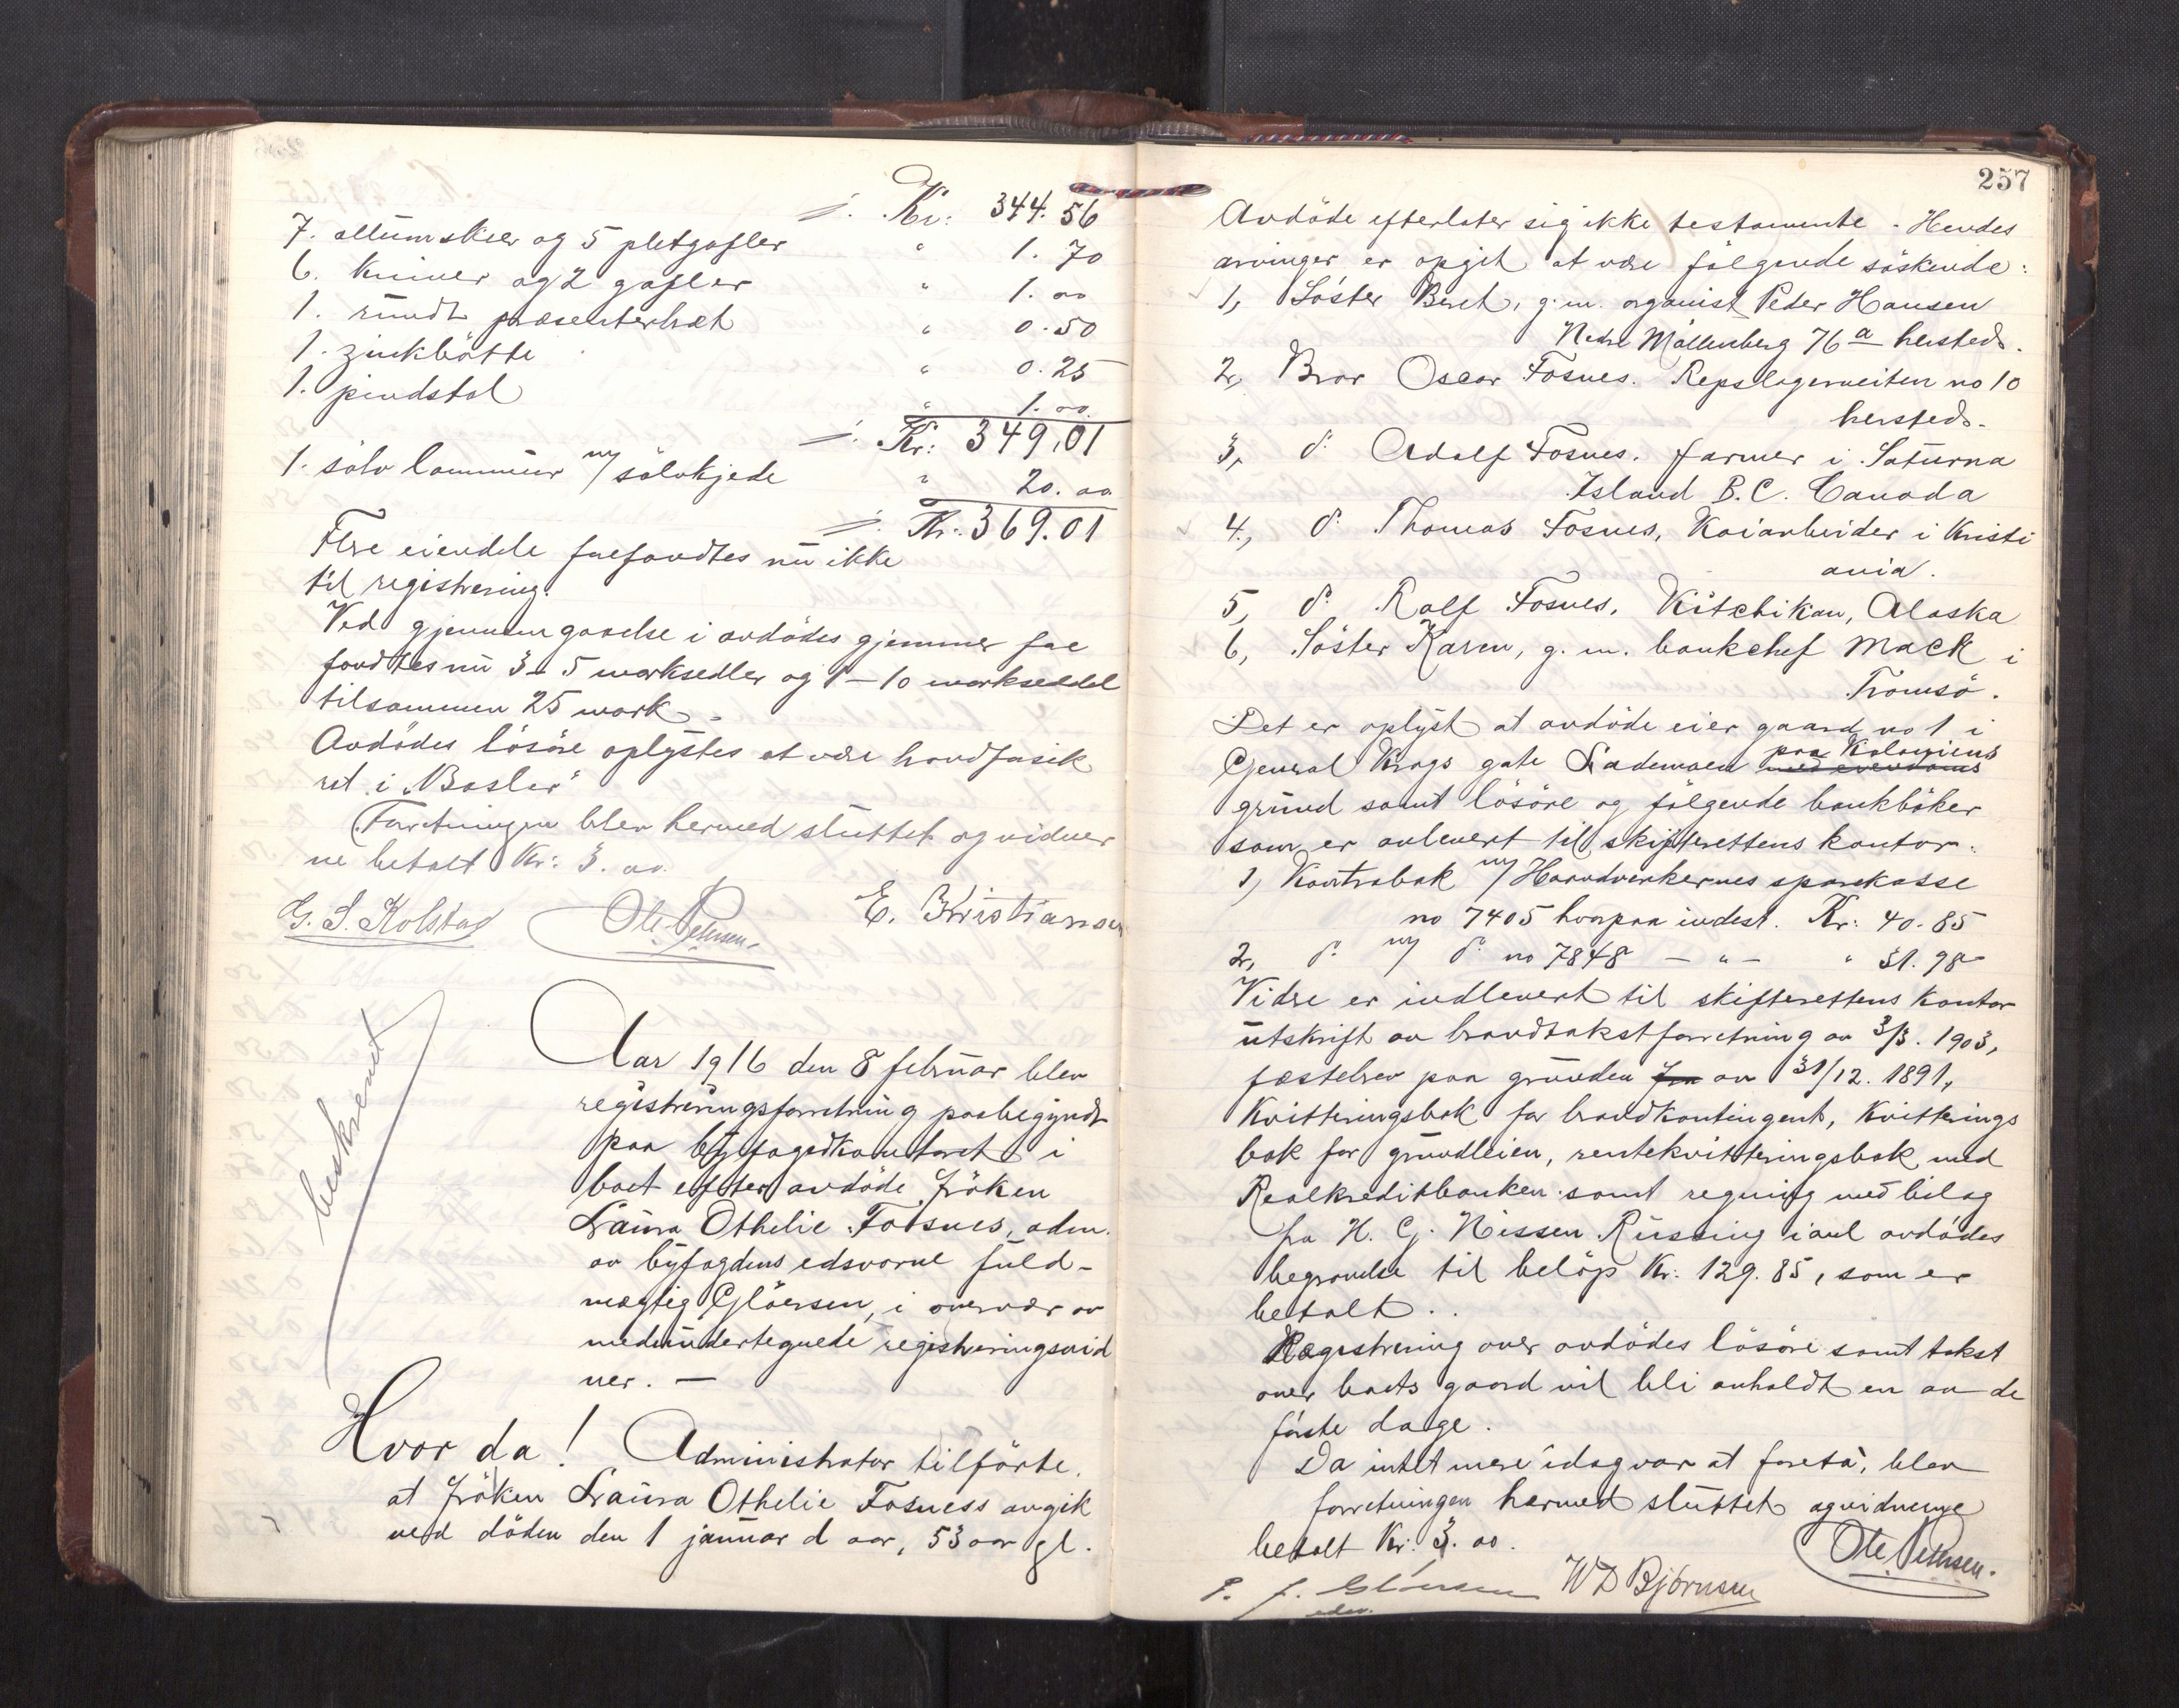 /. Kr: 344.56
7. allumskeer og 5 pletgafler " 1.70
6. kniver og 2 gafler " 1.00
1. rundt præsenterbret " 0.50
1. zinkbøtte " 0.25
1. pindstol " 1.00
/. Kr: 349.01
1. sölv lommeur m/ sölvkjede " 20.00
/. Kr: 369.01
Flere eiendele forefandtes nu ikke
til registrering.
Ved gjennemgaaelse i avdödes gjemmer fore
fandtes nu 3 - 5 marksedler og 1 - 10 markseddel
tilsammen 25 mark -
Avdödes lösöre oplystes at være brandforsik
ret i "Basler"
Forretningen blev hermed sluttet og vidner
ne betalt Kr: 3.00.
G. S. Kolstad Ole Petersen E. Kristiansen
beskrevet
Aar 1916 den 8 februar blev
registreringsforretning paabegyndt
paa byfogedkontoret i
boet efter avdöde fröken
Laura Othelie Fosnes, adm.
av byfogdens edsvorne fuld-
mægtig Glöersen, i overvær av
medundertegnede registreringsvid
ner. -
Hvor da! Administrator tilförte.
at fröken Laura Othelie Fosness avgik
ved döden den 1 januar d aar, 53 aar gl.
257
Avdöde efterlater sig ikke testamente. Hendes
arvinger er opgit at være fölgende söskende:
1, Söster Beret, g. m. organist Peder Hansen
Nedre Möllenberg 76 a hersteds.
2, Bror Oscar Fosnes. Repslagerveiten no 10
hersteds.
3, do Adolf Fosnes. farmer i Saturna
Island B.C. Canada
4., do Thomas Fosnes, Kaiarbeider i Kristi
ania.
5, do Rolf Fosnes, Kitchikan, Alaska
6, Söster Karen, g. m. bankchef Mack i
Tromsö.
Det er oplyst at avdöde eier gaard no 1 i
General Krags gate Lademoen paa Kolonien
grund samt lösöre og fölgende bankböker
som er avlevert til skifterettens kontor:
1, Kontrabok m/ Haandverkernes sparekasse
no 7405 hvorpaa indest. Kr: 40.85
2, do m/ do no 7848 - " - " 31.98
Videre er indlevert til skifterettens kontor
utskrift av brandtakstforretning av 3/3. 1903,
fæstebrev paa grunden fra av 31/12. 1891,
Kvitteringsbok for brandkontingent, Kvitterings
bok for grundleien, rentekvitteringsbok med
Realkreditbanken samt regning med bilag
fra H. G. Nissen Rüssing i anl avdödes
begravelse til belöp Kr: 129.85, som er
betalt.
Registrering over avdödes lösöre samt takst
over boets gaard vil bli avholdt en av de
förste dage.
Da intet mere idag var at foreta, blev
forretningen hermed sluttet og vidnerne
betalt Kr: 3.00.
Ole Petersen.
P. J. Glöersen W D Björnsen
edsv.